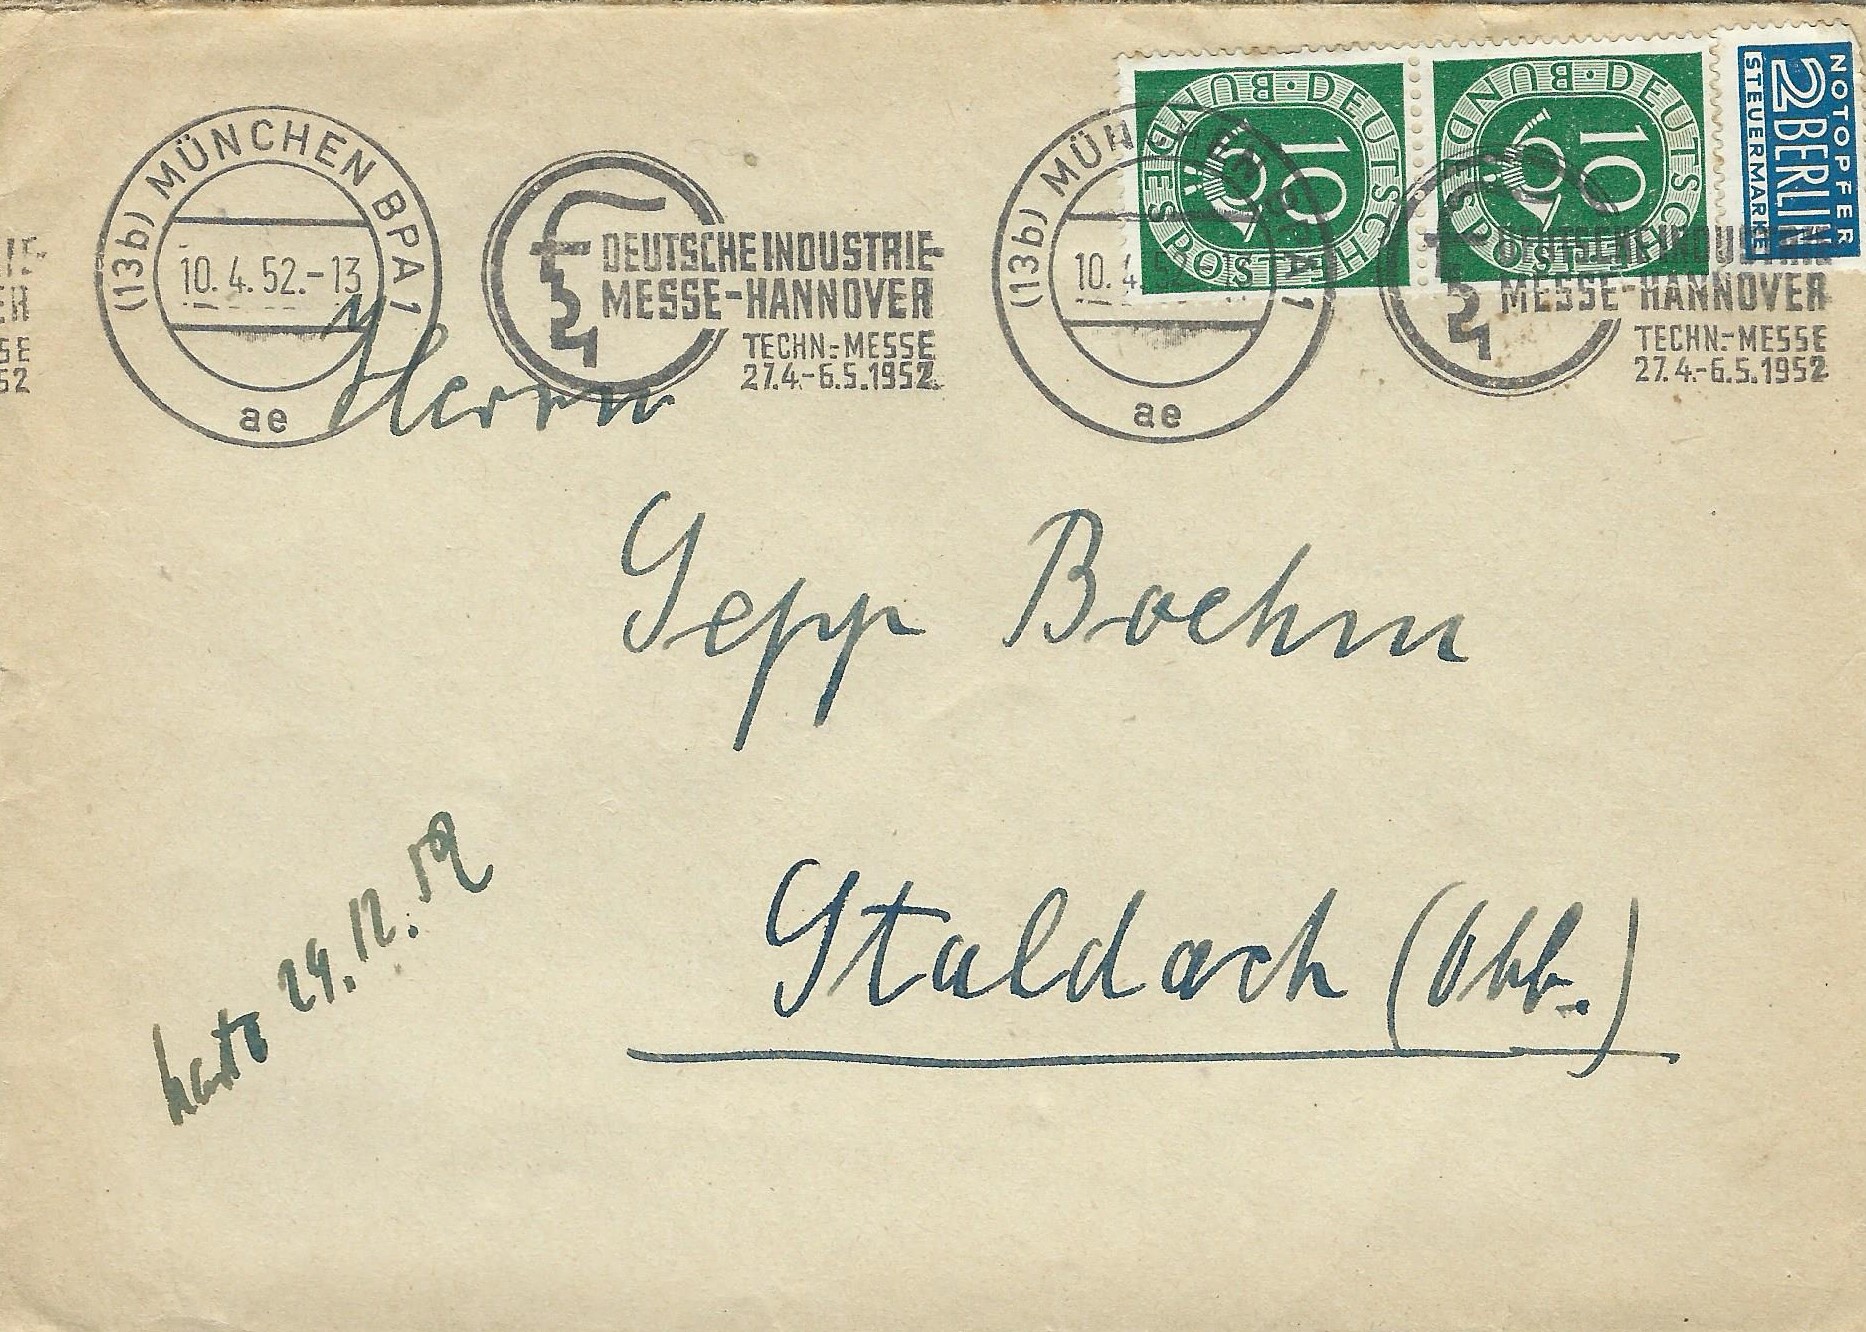 (13b) MÜNCHEN BPA 1
10.4.52.-13
ae
DEUTSCHE INDUSTRIE-
MESSE-HANNOVER
TECHN.-MESSE
27.4.-6.5.1952
(13b) MÜNCHEN BPA 1
10.4.52.-13
ae
DEUTSCHE INDUSTRIE-
MESSE-HANNOVER
TECHN.-MESSE
27.4.-6.5.1952
DEUTSCHE BUNDESPOST
10
DEUTSCHE BUNDESPOST
10
NOTOPFER
2 BERLIN
STEUERMARKE
IE-
ER
SE
52
Herrn
Sepp Boehm
Staldach (Obb.)
24.12.52